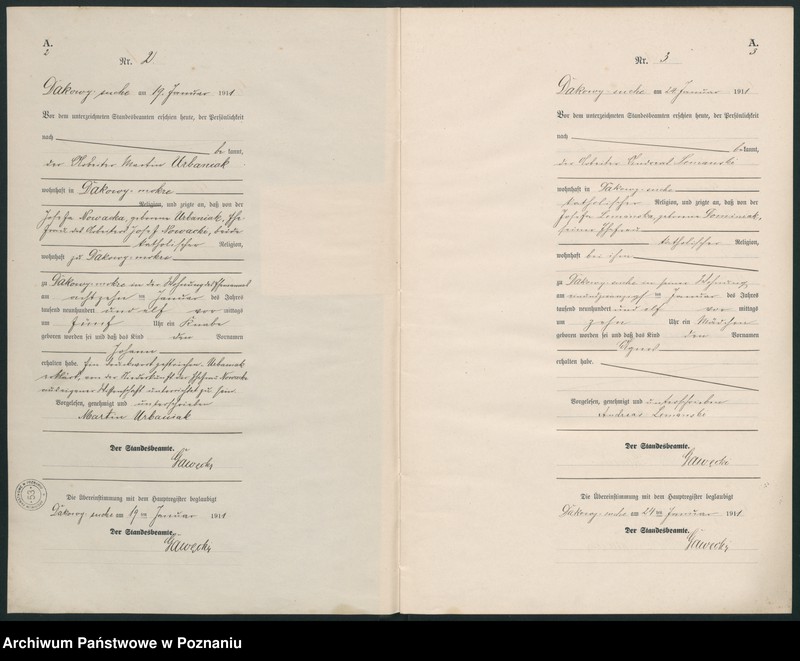 A.
2
Nr. 2
Dakowy-suche am 19. Januar 1911
Vor dem unterzeichneten Standesbeamten erschien heute, der Persönlichkeit
nach
be kannt,
der Arbeiter Martin Urbaniak
wohnhaft in Dakowy-mokre
Religion, und zeigte an, daß von der
Josefa Nowacka, geborene Urbaniak, Ehe-
frau des Arbeiters Josef Nowacki, beide
katholischer Religion,
wohnhaft zu Dakowy-mokre
zu Dakowy-mokre in der Wohnung des Ehemannes
am achtzehn ten Januar des Jahres
tausend neunhundert und elf vor mittags
um fünf Uhr ein Knabe
geboren worden sei und daß das Kind den Vornamen
Johann
erhalten habe. Ein Druckwort gestrichen. Urbaniak
erklärt, von der Niederkunft der Ehefrau Nowacka
aus eigener Wissenschaft unterrichtet zu sein
Vorgelesen, genehmigt und unterschrieben
Martin Urbaniak
Der Standesbeamte.
Gawęcki
Die Übereinstimmung mit dem Hauptregister beglaubigt
Dakowy-suche am 19 ten Januar 1911
Der Standesbeamte.
Gawęcki
53
A.
3
Nr. 3
Dakowy-suche am 24 Januar 1911
Vor dem unterzeichneten Standesbeamten erschien heute, der Persönlichkeit
nach
be kannt,
der Arbeiter Lemanski
wohnhaft in Dakowy-suche
katholischer Religion, und zeigte an, daß von der
Josefa Lemanska, geborene
seiner Ehefrau
katholischer Religion,
wohnhaft bei ihm
zu Dakowy-suche in seiner Wohnung
am ten Januar des Jahres
tausend neunhundert und elf vor mittags
um zehn Uhr ein Mädchen
geboren worden sei und daß das Kind den Vornamen
Agnes
erhalten habe.
Vorgelesen, genehmigt und unterschrieben
Andreas Lemanski
Der Standesbeamte.
Gawęcki
Die Übereinstimmung mit dem Hauptregister beglaubigt
Dakowy-suche am 24 ten Januar 1911
Der Standesbeamte.
Gawęcki
Archiwum Państwowe w Poznaniu